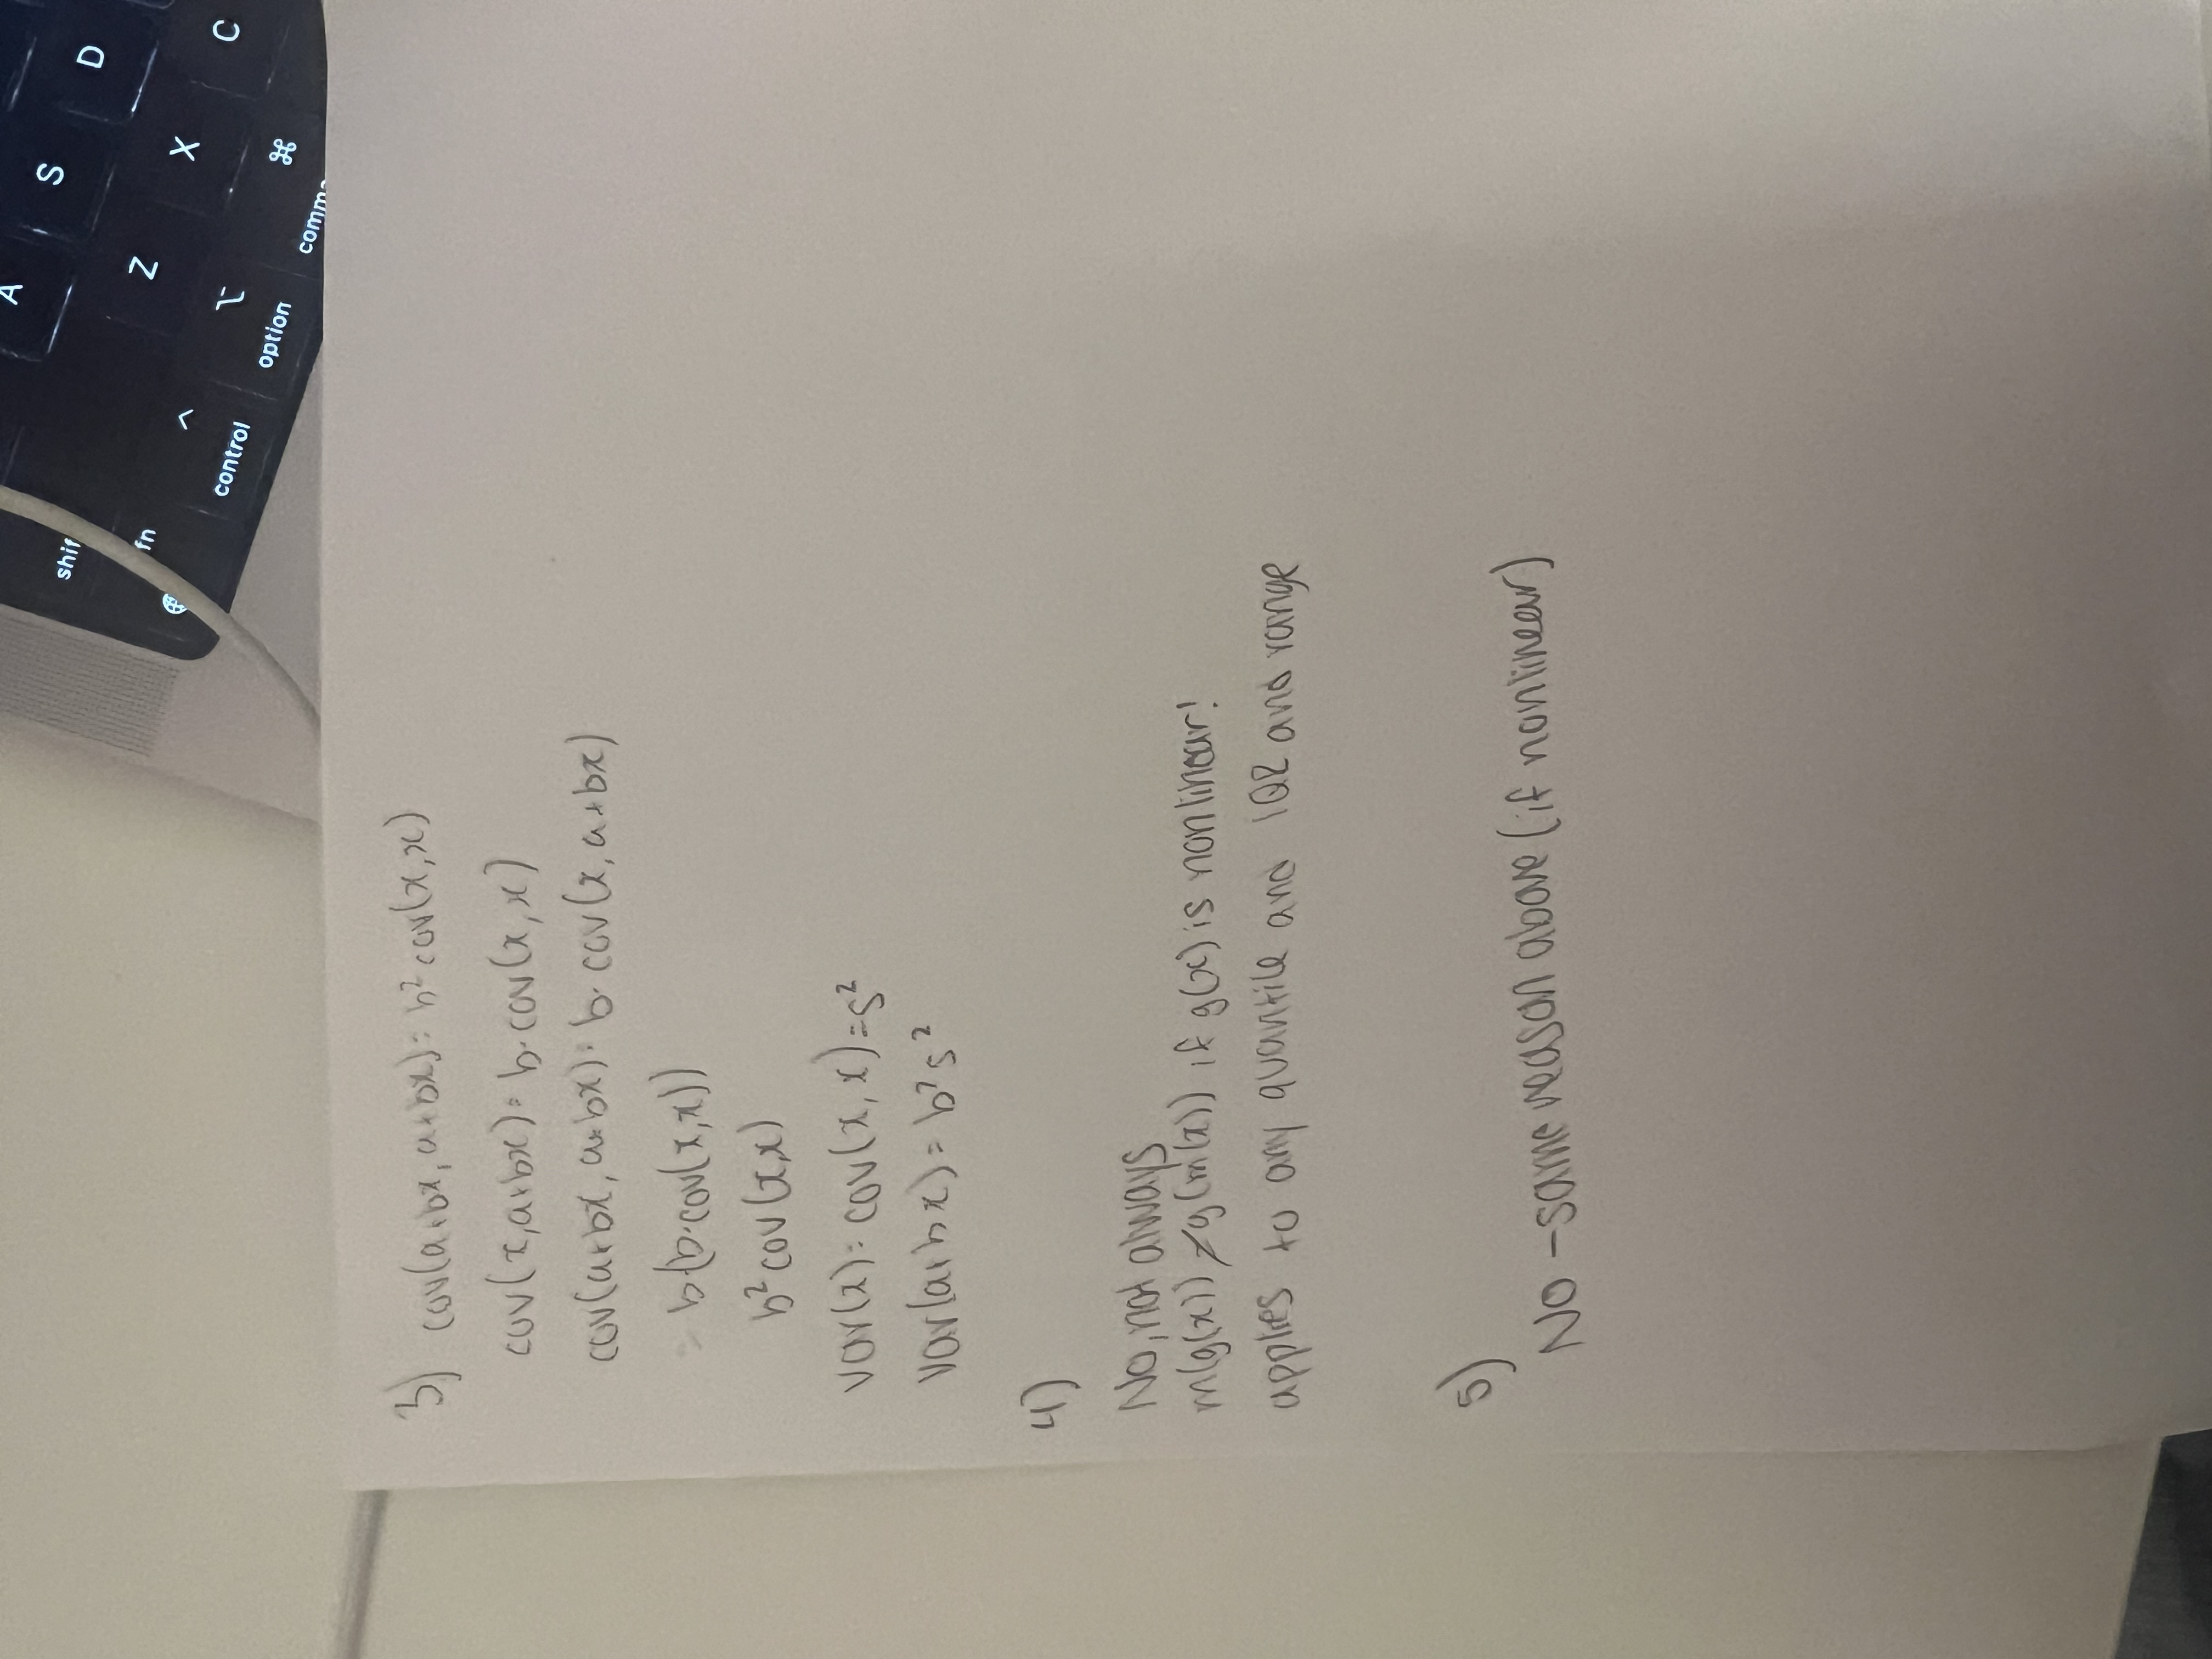 A
S
D
shif
fn
Z
X
C
^
control
⌥
option
⌘
comma
3) cov(a+bx, a+bx) = b² cov(x,x)
cov(x,a+bx) = b·cov(x,x)
cov(a+bx, a+bx) = b· cov(x, a+bx)
= b·(b·cov(x,x))
b² cov(x,x)
var(x) = cov(x, x) = s²
var(a+bx) = b² s²
4)
No, not always
m(g(x)) ≠ g(m(x)) if g(x) is nonlinear!
applies to any quantile and IQR and range
5)
No - same reason above (if nonlinear)